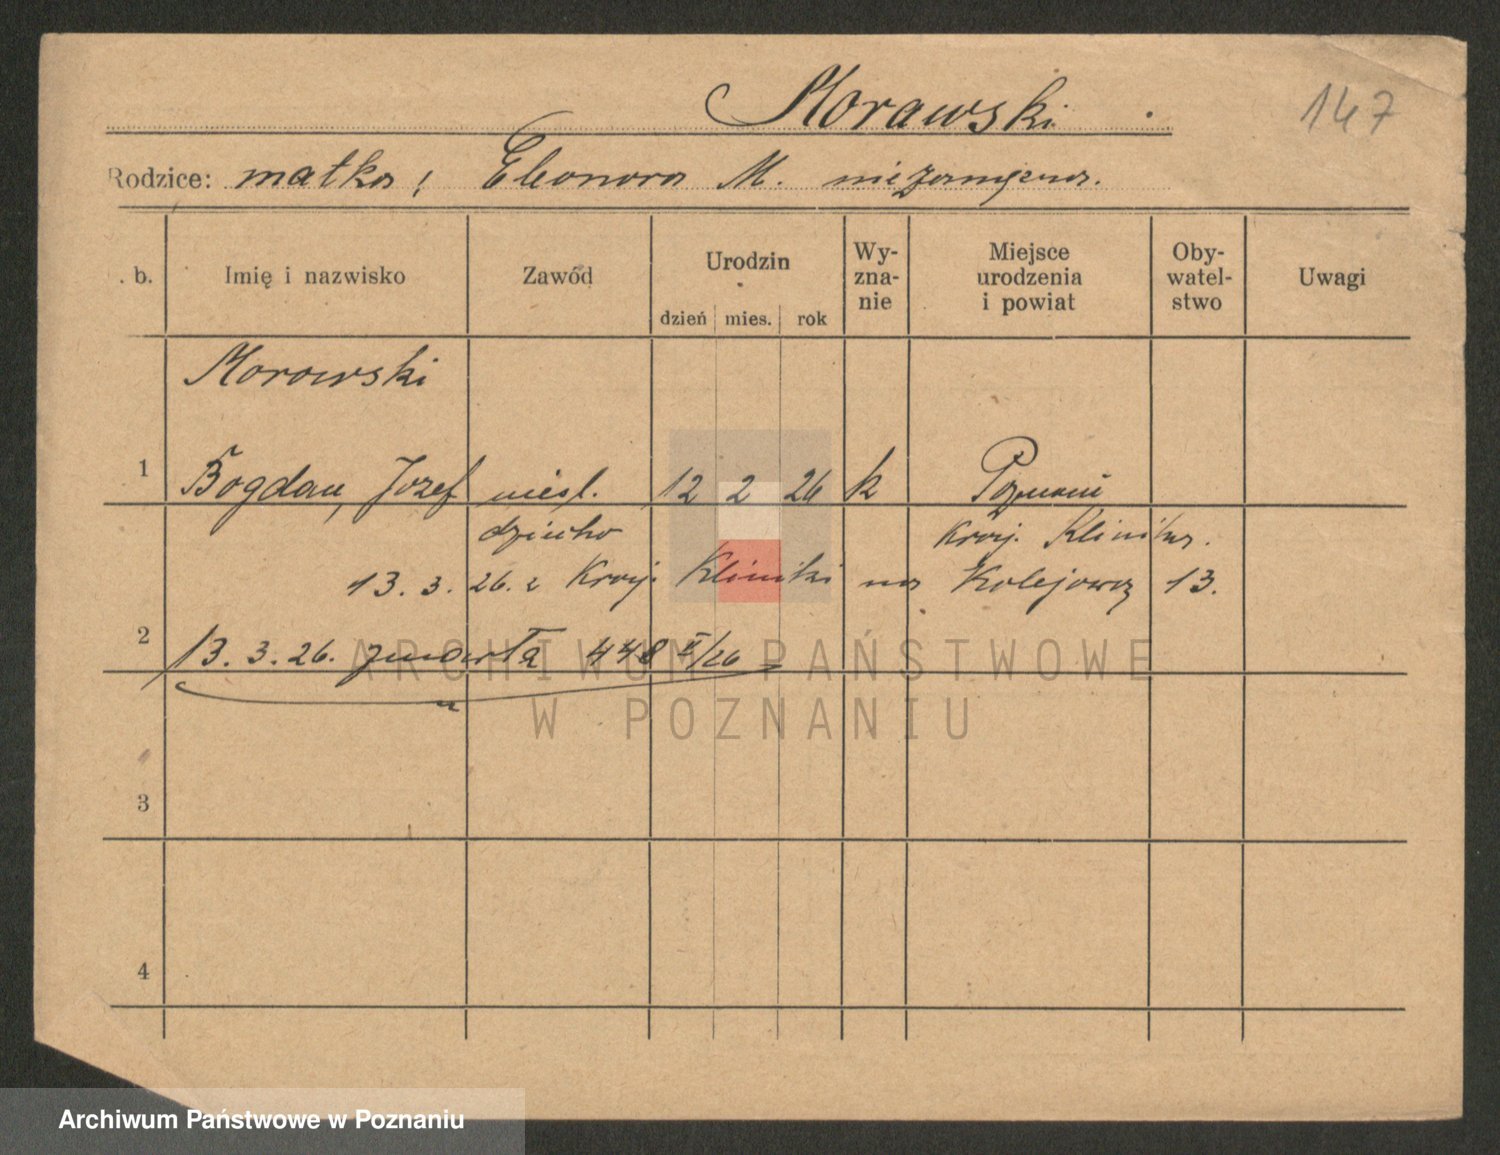 Morawski.
147
Rodzice: matka, Eleonora M. niezamężna.
. b. Imię i nazwisko Zawód Urodzin dzień mies. rok Wy-zna-nie Miejsce urodzenia i powiat Oby-watel-stwo Uwagi
Morawski
1 Bogdan, Jozef nieśl. 12 2 26 k Poznań
dziecko Kraj. Klinika.
13. 3. 26. z Kraj. Kliniki na Kolejową 13.
2 13. 3. 26. zmarła 448 II/26
ARCHIWUM PAŃSTWOWE
W POZNANIU
3
4
Archiwum Państwowe w Poznaniu